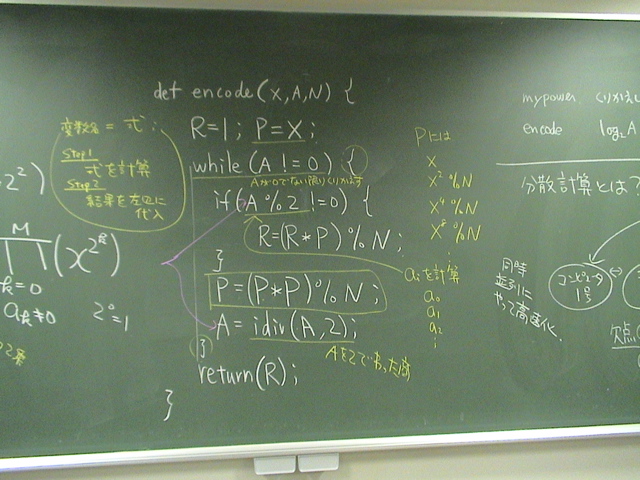 def encode(X,A,N) {
R=1; P=X;
while (A != 0) {
Aが0でない限りくりかえす
if(A%2!=0) {
R=(R*P)%N;
}
P=(P*P)%N;
A=idiv(A,2);
}
return(R);
}
変数名 = 式;
Step1
式を計算
Step2
結果を左辺に
代入
M
∏(X^{2^k})
k=0
a_k≠0
2^0=1
Pには
X
X^2%N
X^4%N
X^8%N
:
a_iを計算
a_0
a_1
a_2
:
Aを2でわった商
mypower
encode log_2A
分散計算とは?
同時
並列に
やって高速化.
コンピュータ
1号
欠点